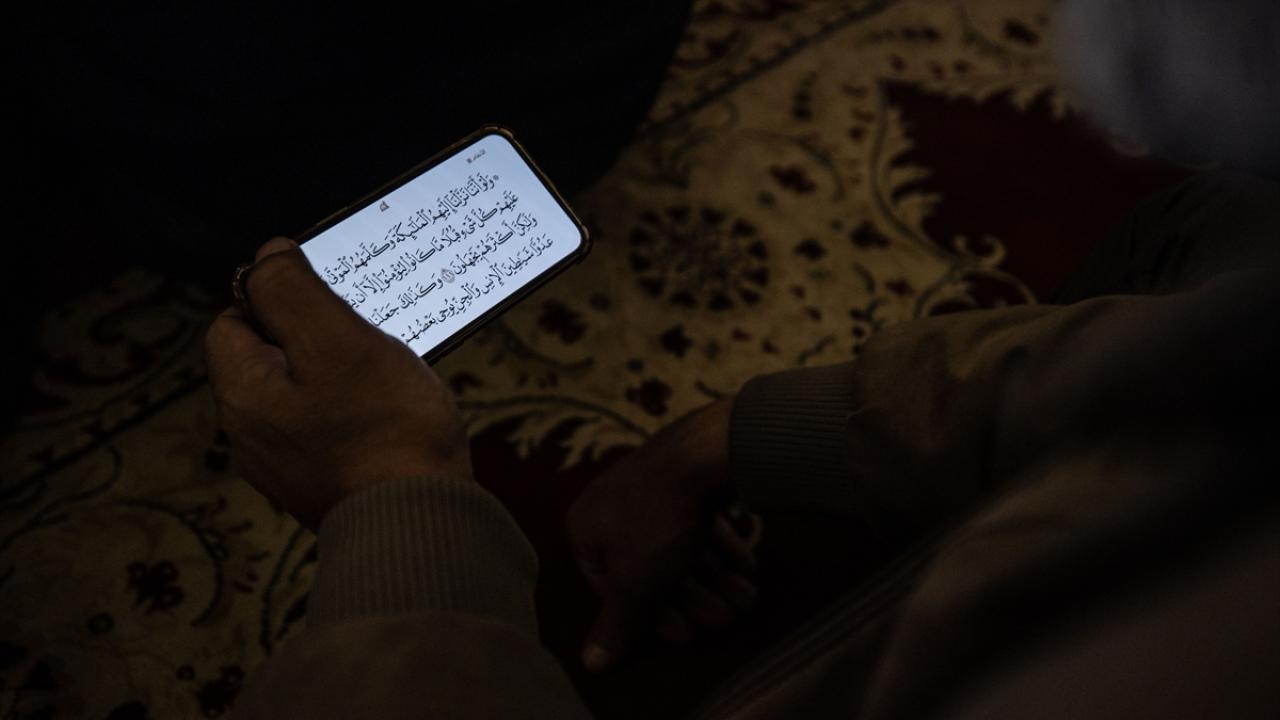 الأنعام
۞ وَلَوْ أَنَّنَا نَزَّلْنَا إِلَيْهِمُ ٱلْمَلَٰٓئِكَةَ وَكَلَّمَهُمُ ٱلْمَوْتَىٰ
عَلَيْهِمْ كُلَّ شَىْءٍ قُبُلًا مَّا كَانُوا۟ لِيُؤْمِنُوٓا۟ إِلَّآ أَن
وَلَٰكِنَّ أَكْثَرَهُمْ يَجْهَلُونَ ۝ وَكَذَٰلِكَ جَعَلْنَا
عَدُوًّا شَيَٰطِينَ ٱلْإِنسِ وَٱلْجِنِّ يُوحِى بَعْضُهُمْ